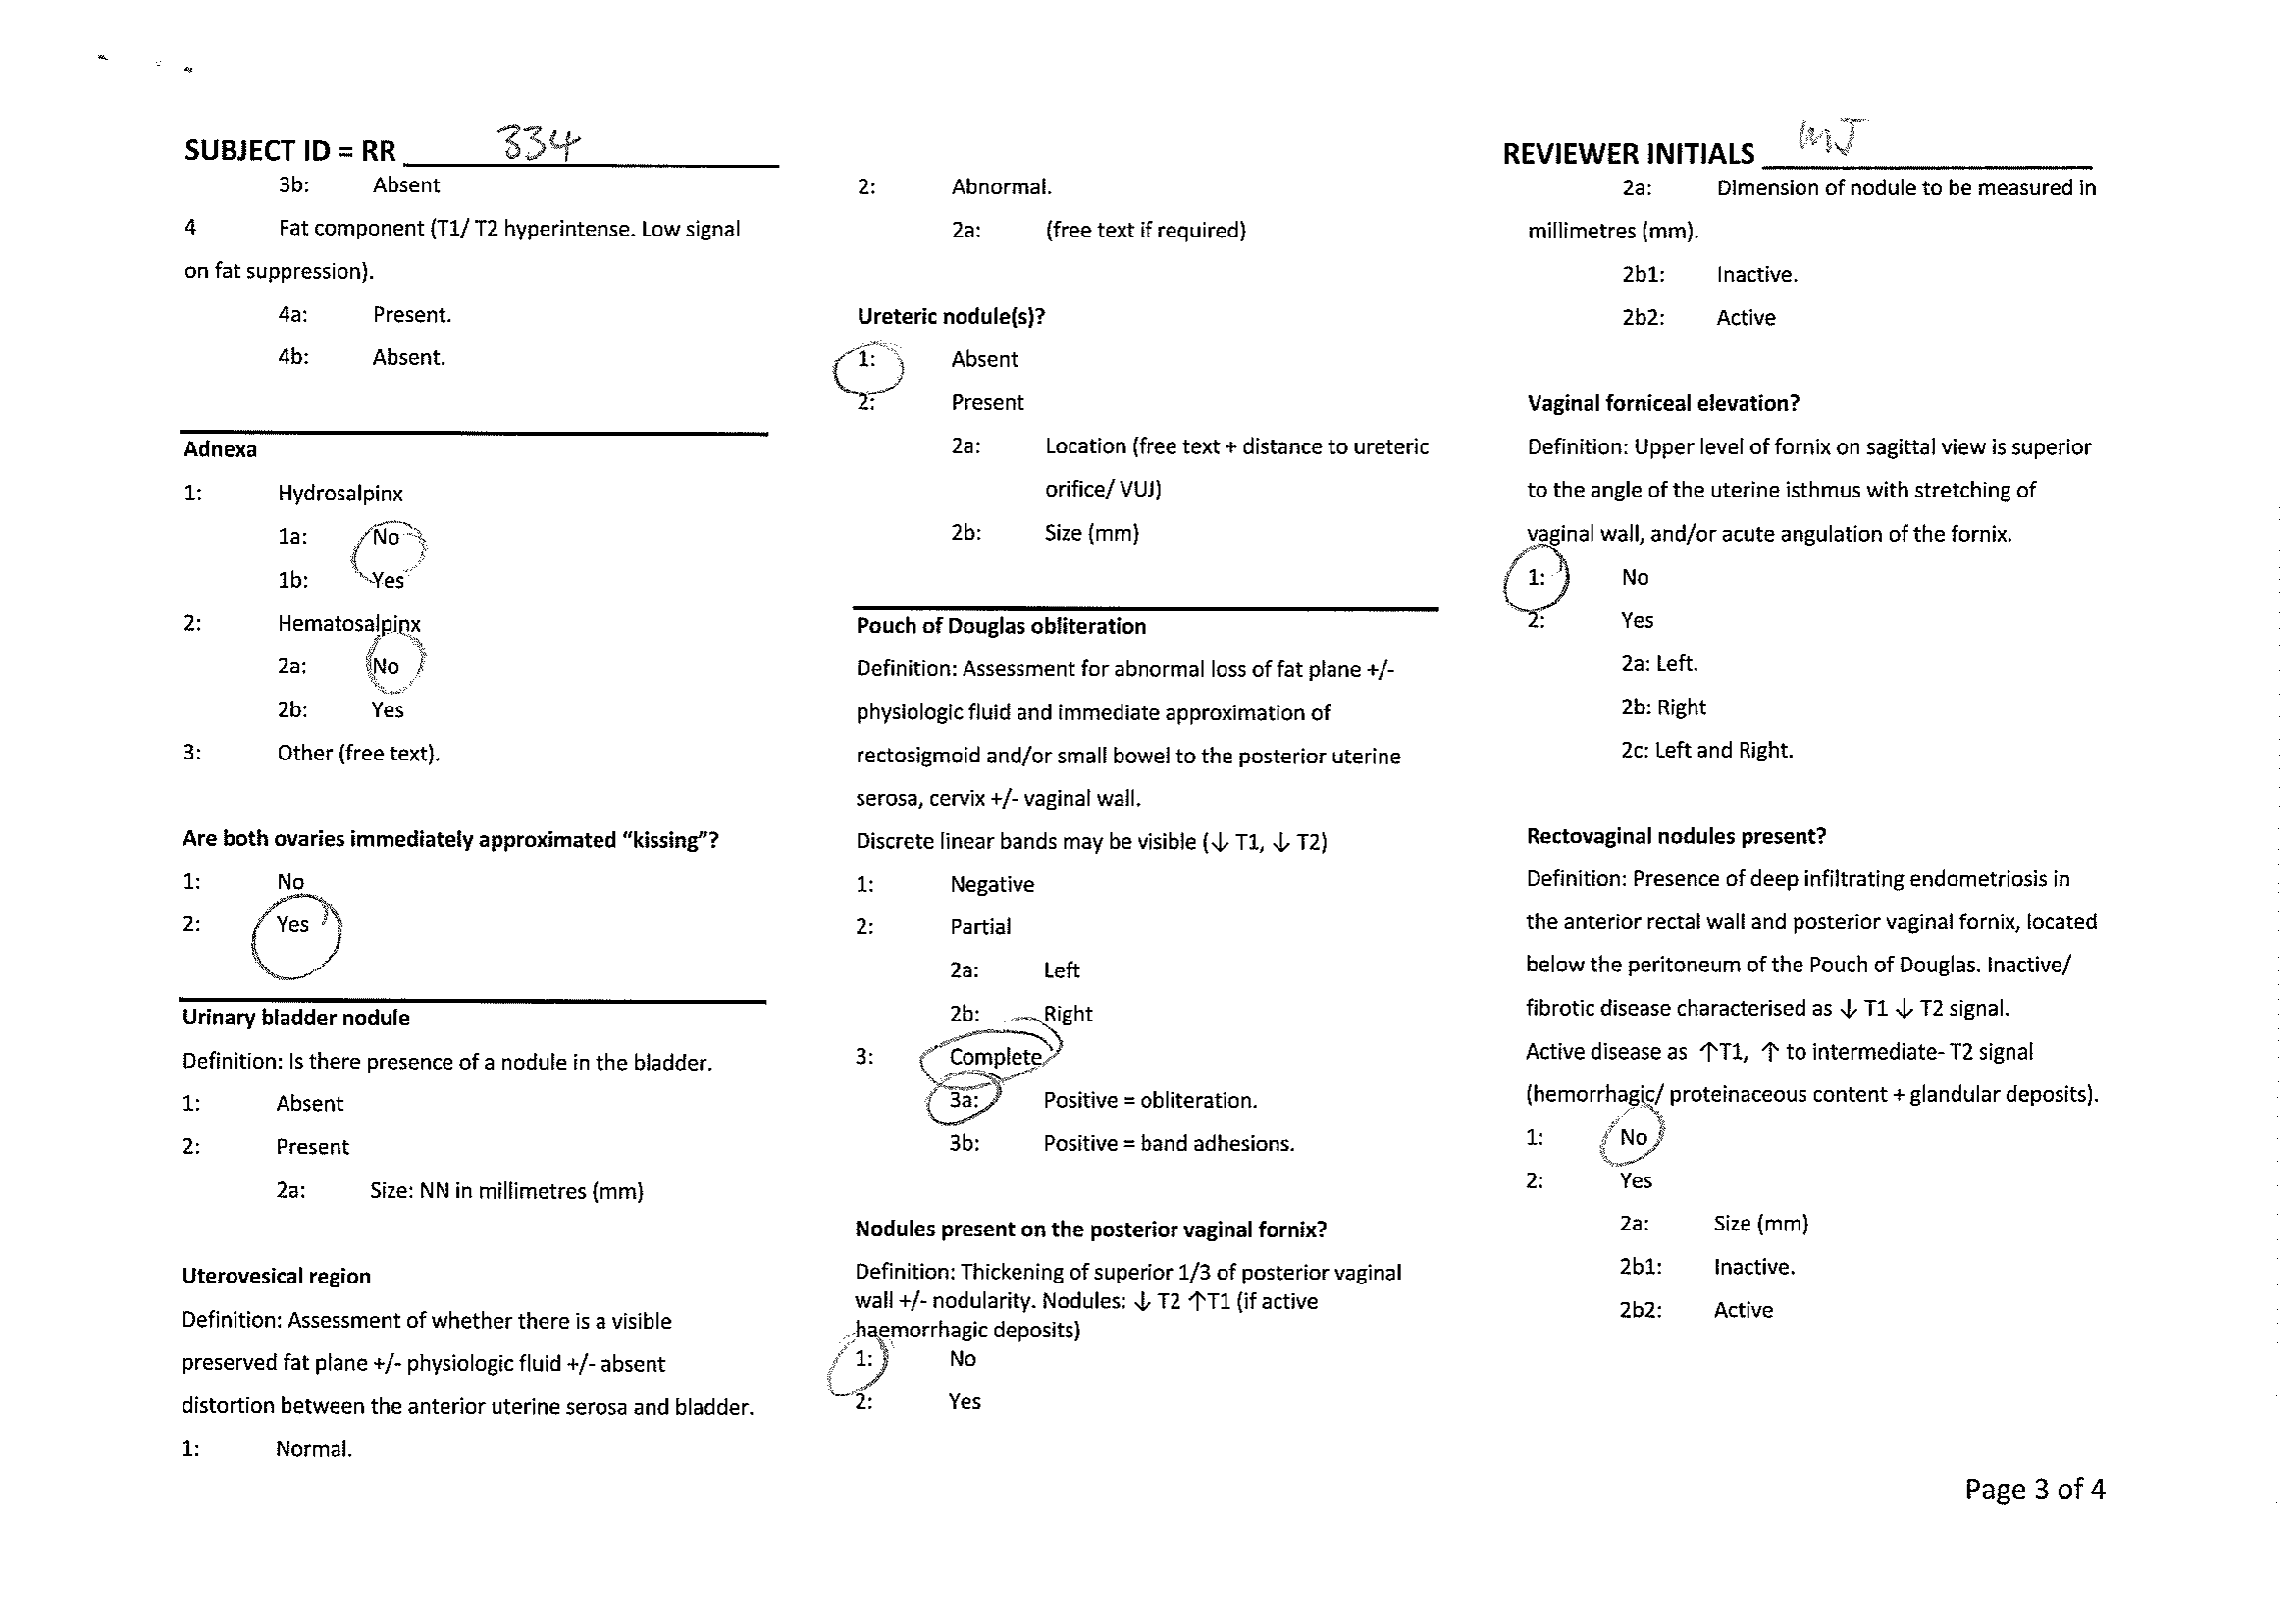 SUBJECT ID = RR 334
3b: Absent
4 Fat component (T1/ T2 hyperintense. Low signal
on fat suppression).
4a: Present.
4b: Absent.
Adnexa
1: Hydrosalpinx
1a: No
1b: Yes
2: Hematosalpinx
2a: No
2b: Yes
3: Other (free text).
Are both ovaries immediately approximated “kissing”?
1: No
2: Yes
Urinary bladder nodule
Definition: Is there presence of a nodule in the bladder.
1: Absent
2: Present
2a: Size: NN in millimetres (mm)
Uterovesical region
Definition: Assessment of whether there is a visible
preserved fat plane +/- physiologic fluid +/- absent
distortion between the anterior uterine serosa and bladder.
1: Normal.
2: Abnormal.
2a: (free text if required)
Ureteric nodule(s)?
1: Absent
2: Present
2a: Location (free text + distance to ureteric
orifice/ VUJ)
2b: Size (mm)
Pouch of Douglas obliteration
Definition: Assessment for abnormal loss of fat plane +/-
physiologic fluid and immediate approximation of
rectosigmoid and/or small bowel to the posterior uterine
serosa, cervix +/- vaginal wall.
Discrete linear bands may be visible (↓ T1, ↓ T2)
1: Negative
2: Partial
2a: Left
2b: Right
3: Complete
3a: Positive = obliteration.
3b: Positive = band adhesions.
Nodules present on the posterior vaginal fornix?
Definition: Thickening of superior 1/3 of posterior vaginal
wall +/- nodularity. Nodules: ↓ T2 ↑T1 (if active
haemorrhagic deposits)
1: No
2: Yes
REVIEWER INITIALS MJ
2a: Dimension of nodule to be measured in
millimetres (mm).
2b1: Inactive.
2b2: Active
Vaginal forniceal elevation?
Definition: Upper level of fornix on sagittal view is superior
to the angle of the uterine isthmus with stretching of
vaginal wall, and/or acute angulation of the fornix.
1: No
2: Yes
2a: Left.
2b: Right
2c: Left and Right.
Rectovaginal nodules present?
Definition: Presence of deep infiltrating endometriosis in
the anterior rectal wall and posterior vaginal fornix, located
below the peritoneum of the Pouch of Douglas. Inactive/
fibrotic disease characterised as ↓ T1 ↓ T2 signal.
Active disease as ↑T1, ↑ to intermediate- T2 signal
(hemorrhagic/ proteinaceous content + glandular deposits).
1: No
2: Yes
2a: Size (mm)
2b1: Inactive.
2b2: Active
Page 3 of 4